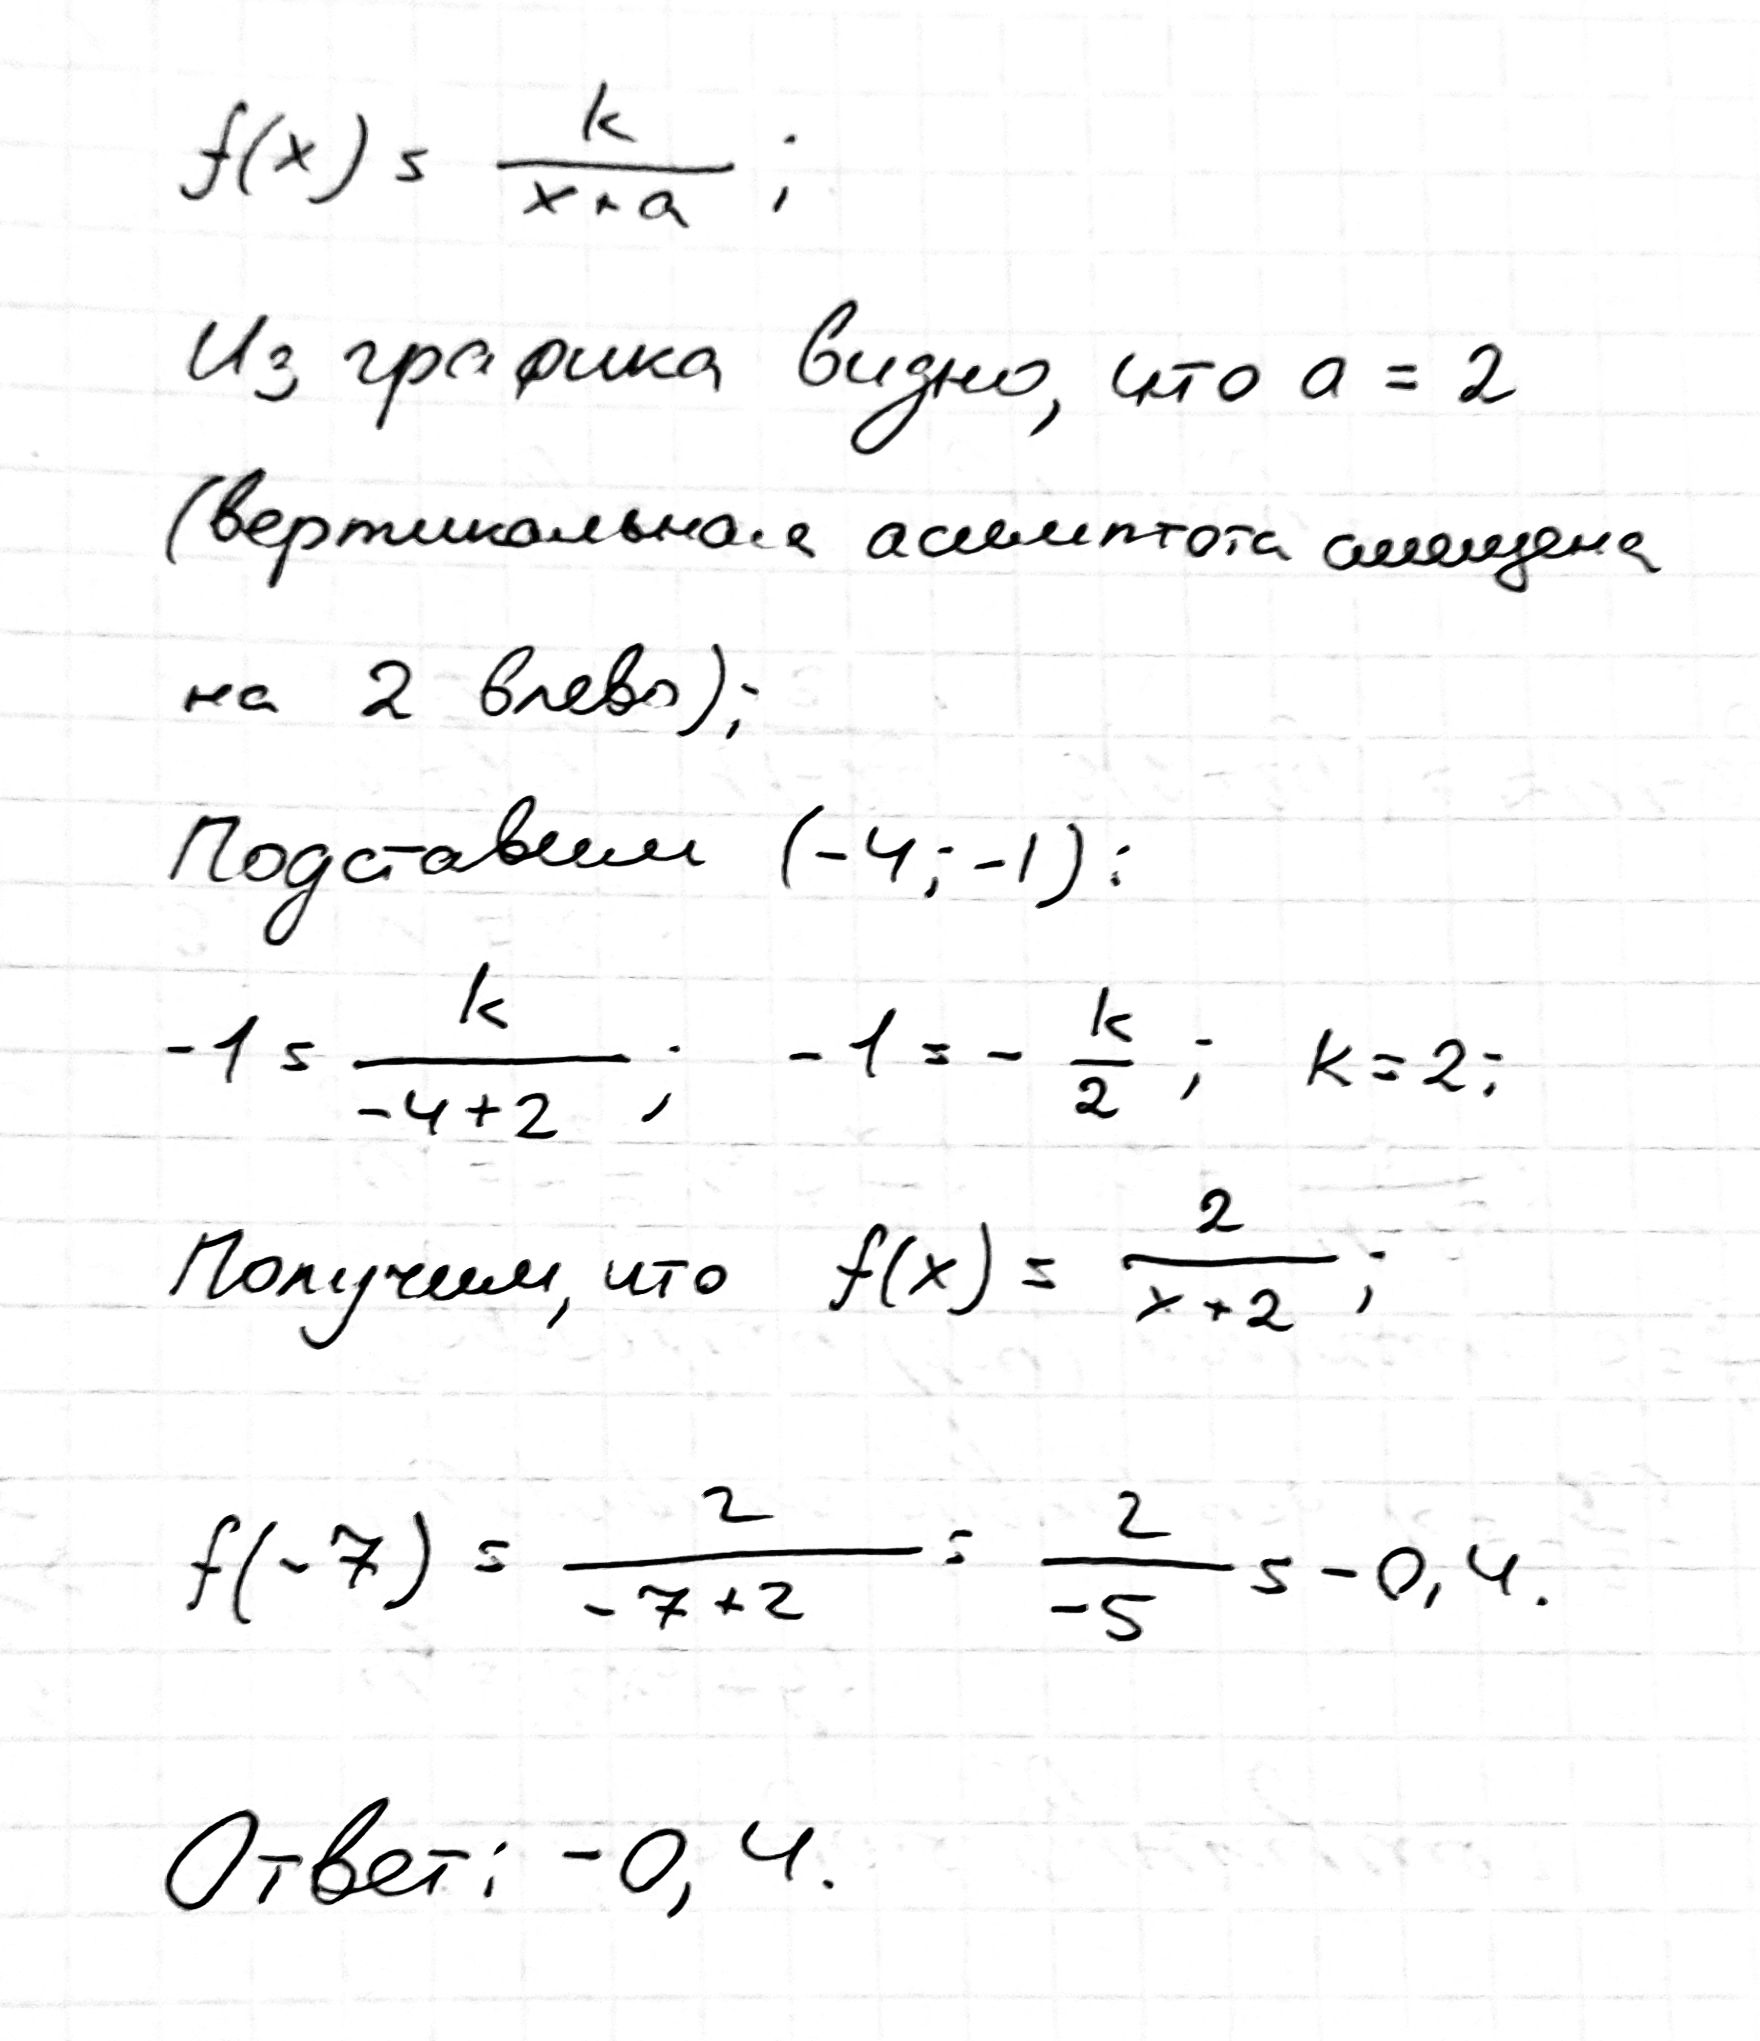 f(x) = k/(x+a);
Из графика видно, что a = 2
(вертикальная асимптота смещена
на 2 влево);
Подставим (-4; -1):
-1 = k/(-4+2); -1 = -k/2; k = 2;
Получим, что f(x) = 2/(x+2);
f(-7) = 2/(-7+2) = 2/(-5) = -0,4.
Ответ: -0,4.